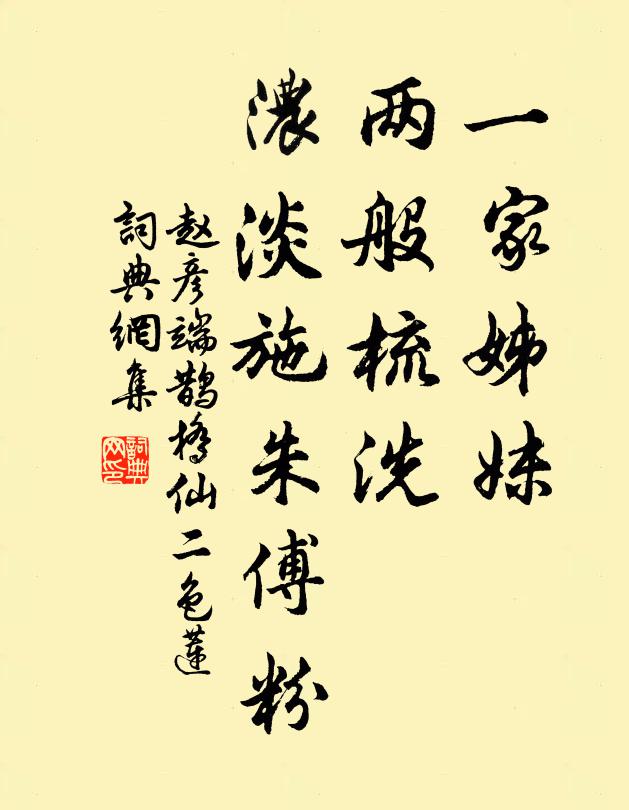 一家姊妹
两般梳洗
濃淡施朱傅粉
赵彦端鹊橋仙二色蓮
詞典網集
詞典网印